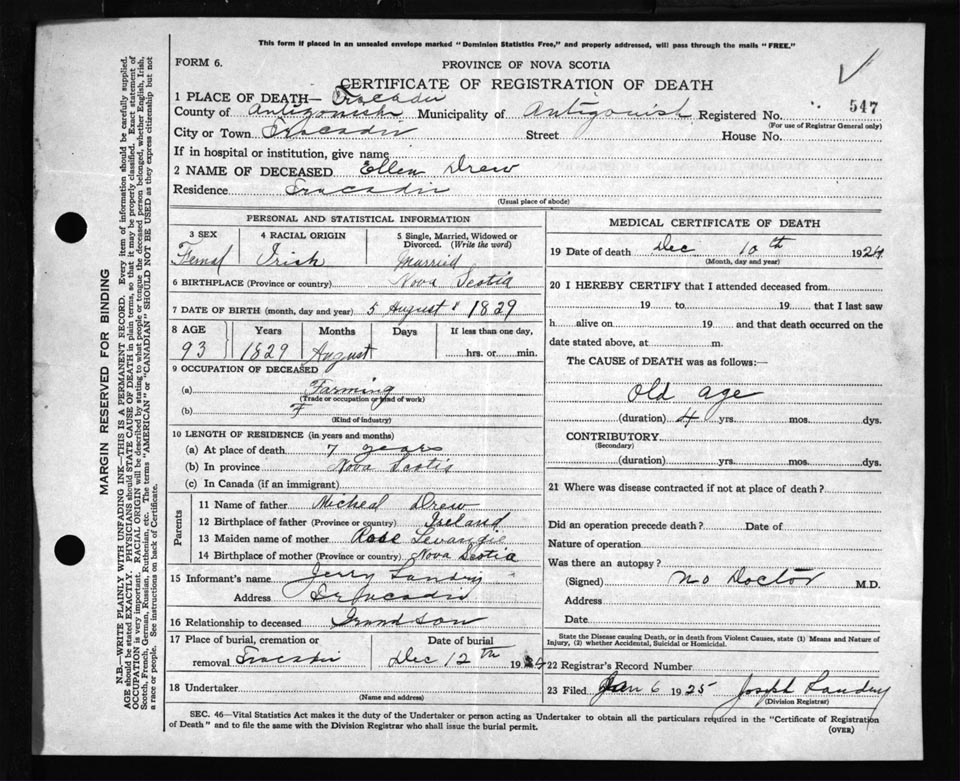 This form if placed in an unsealed envelope marked "Dominion Statistics Free," and properly addressed, will pass through the mails "FREE."
FORM 6.
PROVINCE OF NOVA SCOTIA
CERTIFICATE OF REGISTRATION OF DEATH
1 PLACE OF DEATH— Tracadie
County of Antigonish Municipality of Antigonish Registered No. 547
(For use of Registrar General only)
City or Town Tracadie Street House No.
If in hospital or institution, give name
2 NAME OF DECEASED Ellen Drew
Residence Tracadie
(Usual place of abode)
PERSONAL AND STATISTICAL INFORMATION
3 SEX 4 RACIAL ORIGIN 5 Single, Married, Widowed or Divorced. (Write the word)
Femal Irish Married
6 BIRTHPLACE (Province or country) Nova Scotia
7 DATE OF BIRTH (month, day and year) 5 August 1829
8 AGE Years Months Days If less than one day,
93 1829 August hrs. or min.
9 OCCUPATION OF DECEASED
(a) Farming
(Trade or occupation or kind of work)
(b) F
(Kind of industry)
10 LENGTH OF RESIDENCE (in years and months)
(a) At place of death 7 years
(b) In province Nova Scotia
(c) In Canada (if an immigrant)
Parents
11 Name of father Micheal Drew
12 Birthplace of father (Province or country) Ireland
13 Maiden name of mother Rose Levangie
14 Birthplace of mother (Province or country) Nova Scotia
15 Informant's name Jerry Landry
Address Tracadie
16 Relationship to deceased Grandson
17 Place of burial, cremation or Date of burial
removal Tracadie Dec 12th 1924
18 Undertaker
(Name and address)
MEDICAL CERTIFICATE OF DEATH
19 Date of death Dec 10th 1924
(Month, day and year)
20 I HEREBY CERTIFY that I attended deceased from
19 to 19 that I last saw
h alive on 19 and that death occurred on the
date stated above, at m.
The CAUSE of DEATH was as follows:—
Old age
(duration) 4 yrs. mos. dys.
CONTRIBUTORY
(Secondary)
(duration) yrs. mos. dys.
21 Where was disease contracted if not at place of death?
Did an operation precede death? Date of
Nature of operation
Was there an autopsy?
(Signed) No Doctor M.D.
Address
Date
State the Disease causing Death, or in death from Violent Causes, state (1) Means and Nature of Injury, (2) whether Accidental, Suicidal or Homicidal.
22 Registrar's Record Number
23 Filed Jan 6 1925 Joseph Landry
(Division Registrar)
SEC. 46—Vital Statistics Act makes it the duty of the Undertaker or person acting as Undertaker to obtain all the particulars required in the "Certificate of Registration
of Death" and to file the same with the Division Registrar who shall issue the burial permit.
(OVER)
MARGIN RESERVED FOR BINDING
N.B.—WRITE PLAINLY WITH UNFADING INK—THIS IS A PERMANENT RECORD. Every item of information should be carefully supplied.
AGE should be stated EXACTLY. PHYSICIANS should STATE CAUSE OF DEATH in plain terms, so that it may be properly classified. Exact statement of
OCCUPATION is very important. RACIAL ORIGIN will be described by stating to what people or tongue the deceased person belonged, whether English, Irish,
Scotch, French, German, Russian, Ruthenian, etc. The terms "AMERICAN" or "CANADIAN" SHOULD NOT BE USED as they express citizenship but not
a race or people. See instructions on back of Certificate.